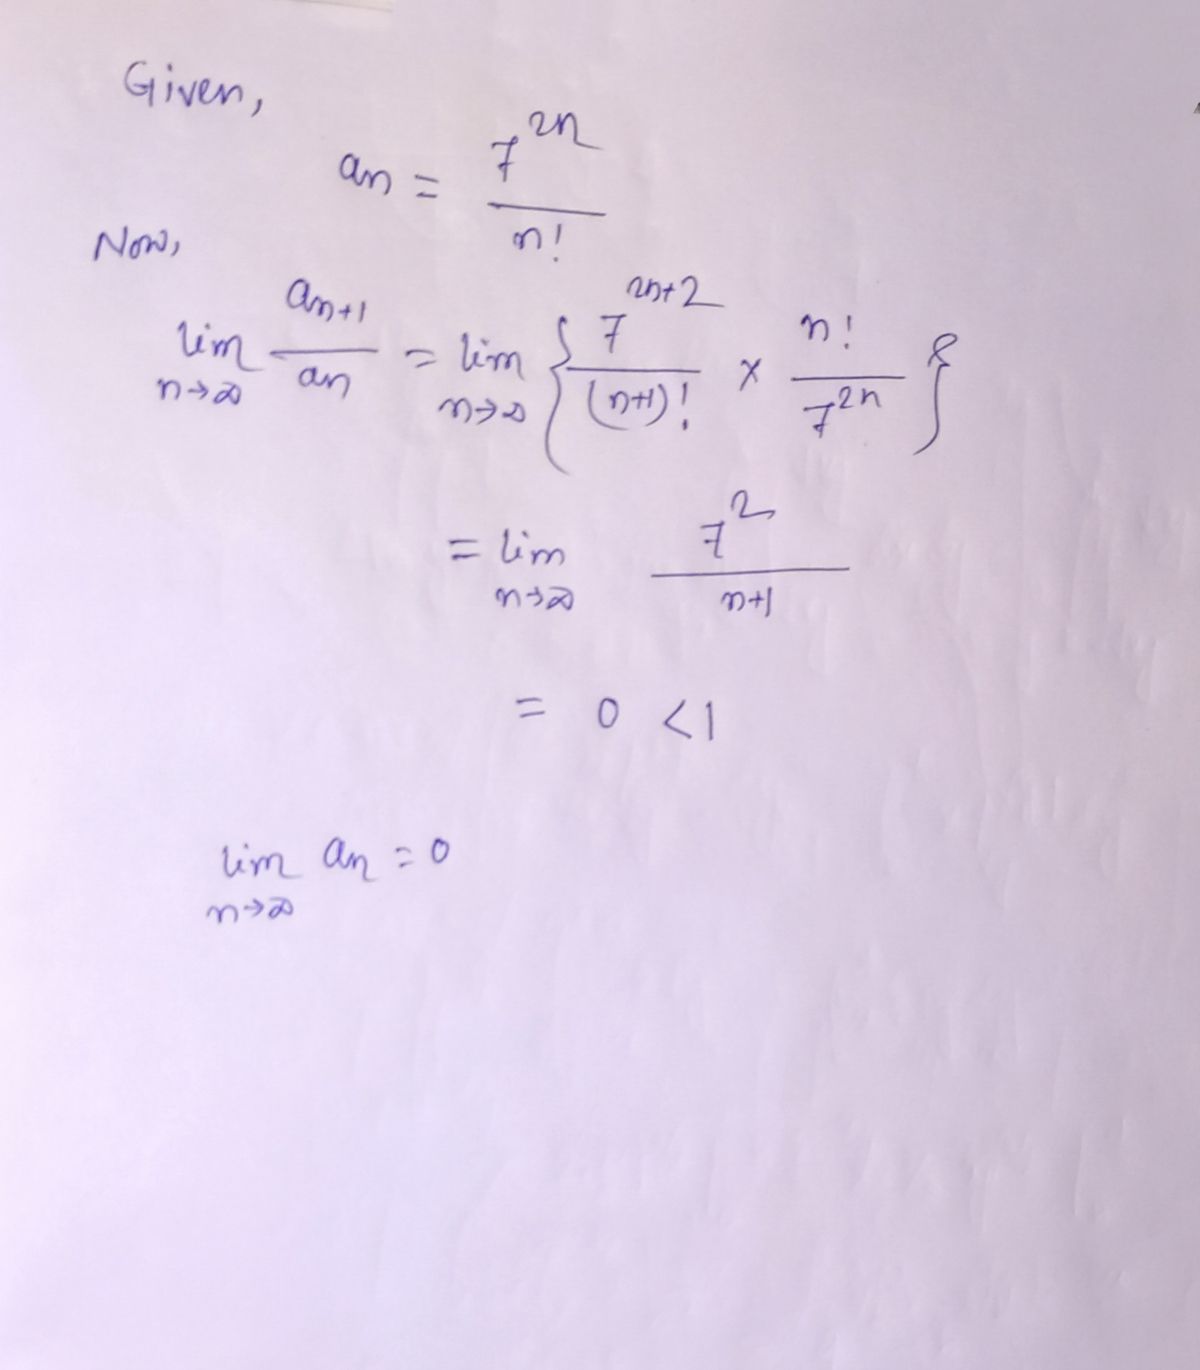 Given,
an = 7^2n / n!
Now,
lim n→∞ an+1 / an = lim n→∞ { 7^2n+2 / (n+1)! × n! / 7^2n }
= lim n→∞ 7^2 / n+1
= 0 < 1
lim n→∞ an = 0